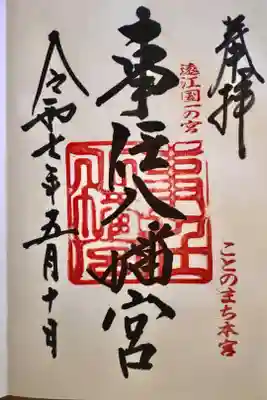 奉拝
遠江国一の宮
ことのまち本宮
事任八幡宮
令和七年五月十日